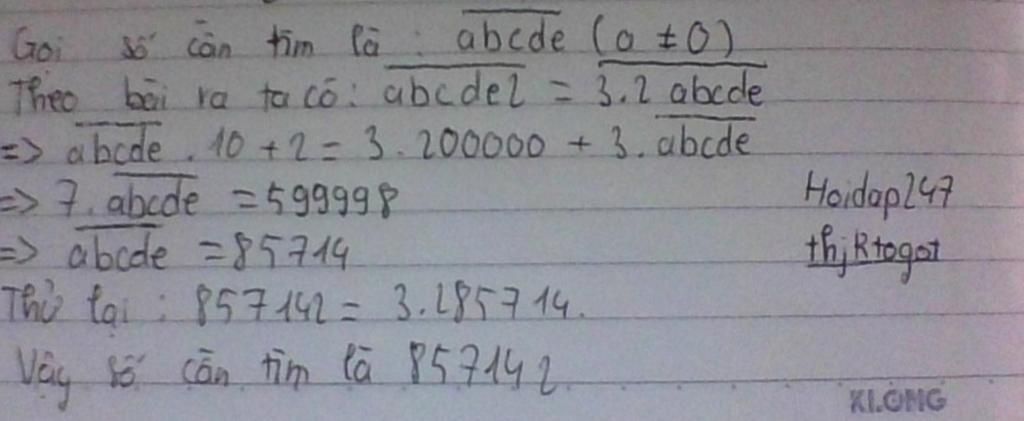 Gọi số cần tìm là : abcde (a ≠ 0)
Theo bài ra ta có: abcde2 = 3.2 abcde
=> abcde . 10 + 2 = 3. 200000 + 3. abcde
=> 7. abcde = 599998
Hoidap247
=> abcde = 85714
thjRtogot
Thử lại : 857142 = 3.285714.
Vậy số cần tìm là 857142
KLONG